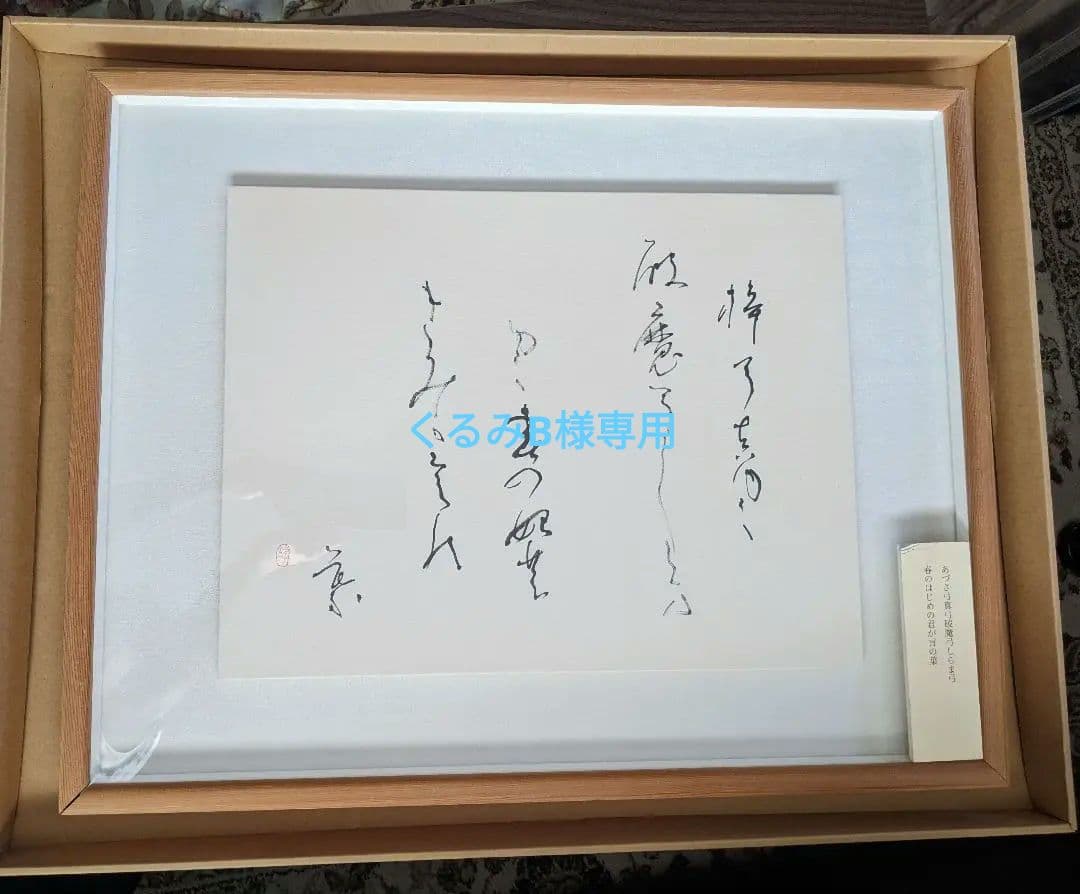 梓弓真弓
破魔弓しらま
弓 春の始
きみか言の
葉
くるみB様専用
あづさ弓真弓破魔弓しらま弓
春のはじめの君が言の葉